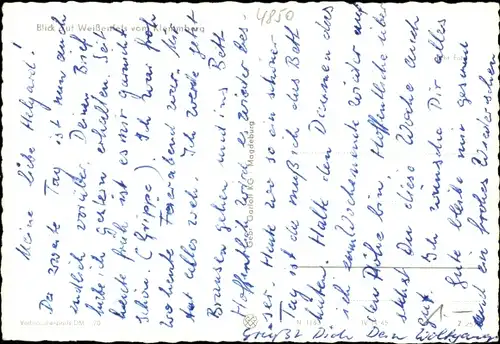 4850
Blick auf Weißenfels vom Klemmberg
Meine liebe Helgard!
Der zweite Tag ist nun auch
endlich vorüber. Deinen Brief
habe ich gestern erhalten. Seit
heute früh ist es mir garnicht
schön. (Grippe). Ich war froh
wo heute Feierabend war. Mir
tut alles weh. Ich werde jetzt
Brausen gehen und ins Bett.
Hoffentlich wird es wieder bes-
ser. Heute wo so ein schöner
Tag ist da muß ich das Bett
hüten. Halte den Daumen das
ich zum Wochenende wieder auf
der Höhe bin. Hoffentliche über
stehst Du diese Woche auch
gut. Ich wünsche Dir alles
Gute bleibe mir gesund
und ein frohes Wiedersehen
Grüßt Dich Dein Wolfgang
Magdeburg